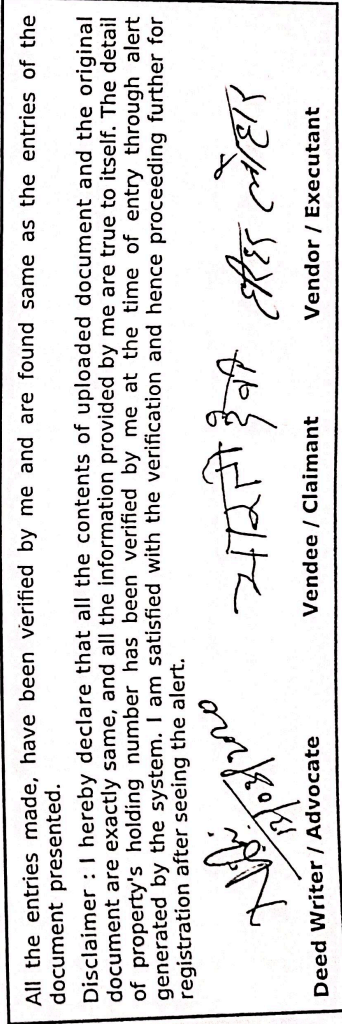 All the entries made, have been verified by me and are found same as the entries of the
document presented.
Disclaimer : I hereby declare that all the contents of uploaded document and the original
document are exactly same, and all the information provided by me are true to itself. The detail
of property's holding number has been verified by me at the time of entry through alert
generated by the system. I am satisfied with the verification and hence proceeding further for
registration after seeing the alert.
Deed Writer / Advocate Vendee / Claimant Vendor / Executant